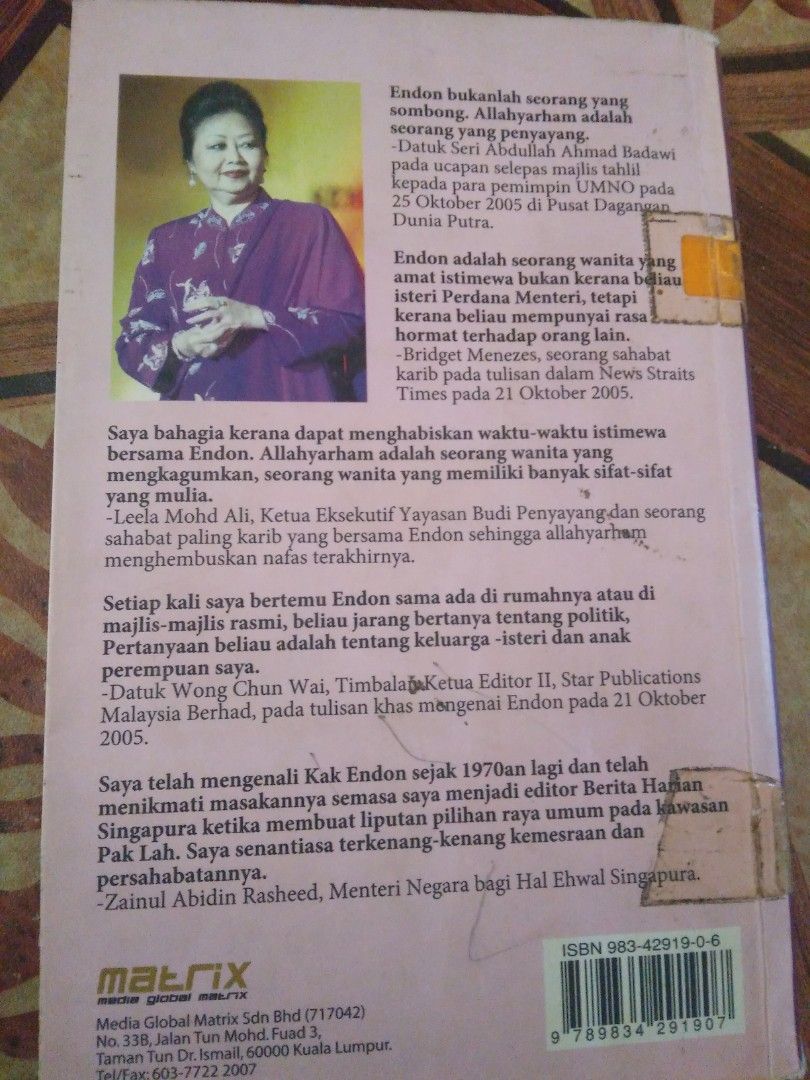 Endon bukanlah seorang yang
sombong. Allahyarham adalah
seorang yang penyayang.
-Datuk Seri Abdullah Ahmad Badawi
pada ucapan selepas majlis tahlil
kepada para pemimpin UMNO pada
25 Oktober 2005 di Pusat Dagangan
Dunia Putra.
Endon adalah seorang wanita yang
amat istimewa bukan kerana beliau
isteri Perdana Menteri, tetapi
kerana beliau mempunyai rasa
hormat terhadap orang lain.
-Bridget Menezes, seorang sahabat
karib pada tulisan dalam News Straits
Times pada 21 Oktober 2005.
Saya bahagia kerana dapat menghabiskan waktu-waktu istimewa
bersama Endon. Allahyarham adalah seorang wanita yang
mengkagumkan, seorang wanita yang memiliki banyak sifat-sifat
yang mulia.
-Leela Mohd Ali, Ketua Eksekutif Yayasan Budi Penyayang dan seorang
sahabat paling karib yang bersama Endon sehingga allahyarham
menghembuskan nafas terakhirnya.
Setiap kali saya bertemu Endon sama ada di rumahnya atau di
majlis-majlis rasmi, beliau jarang bertanya tentang politik,
Pertanyaan beliau adalah tentang keluarga -isteri dan anak
perempuan saya.
-Datuk Wong Chun Wai, Timbalan Ketua Editor II, Star Publications
Malaysia Berhad, pada tulisan khas mengenai Endon pada 21 Oktober
2005.
Saya telah mengenali Kak Endon sejak 1970an lagi dan telah
menikmati masakannya semasa saya menjadi editor Berita Harian
Singapura ketika membuat liputan pilihan raya umum pada kawasan
Pak Lah. Saya senantiasa terkenang-kenang kemesraan dan
persahabatannya.
-Zainul Abidin Rasheed, Menteri Negara bagi Hal Ehwal Singapura.
matrix
media global matrix
Media Global Matrix Sdn Bhd (717042)
No. 33B, Jalan Tun Mohd. Fuad 3,
Taman Tun Dr. Ismail, 60000 Kuala Lumpur.
Tel/Fax: 603-7722 2007
ISBN 983-42919-0-6
9 789834 291907